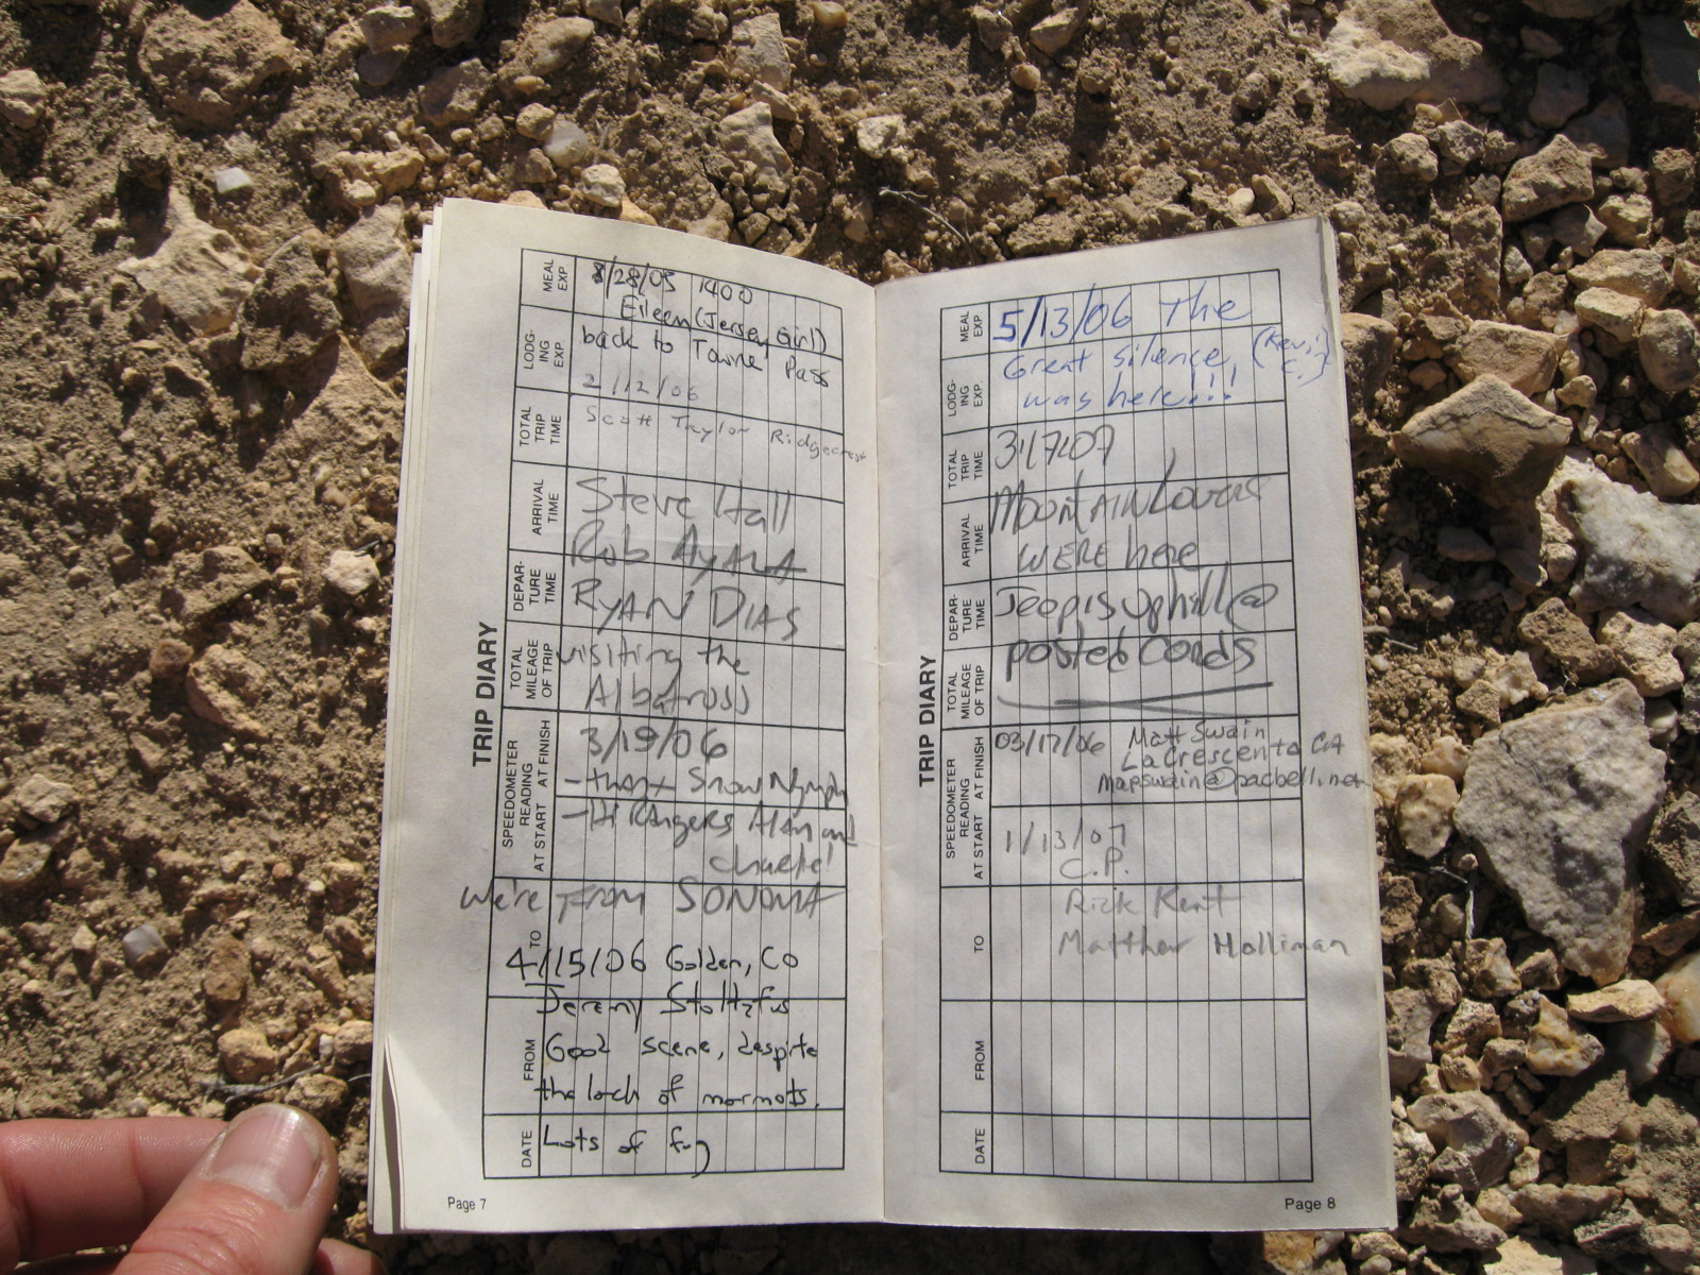 TRIP DIARY
MEAL EXP.
LODG-ING EXP.
TOTAL TRIP TIME
ARRIVAL TIME
DEPAR-TURE TIME
TOTAL MILEAGE OF TRIP
SPEEDOMETER READING
AT START AT FINISH
TO
FROM
DATE
/28/05 1400
Eileen (Jersey Girl)
back to Towne Pass
2/12/06
Scott Taylor Ridgecrest
Steve Hall
Rob Ayala
RYAN DIAS
visiting the
Albatross
3/19/06
- thanx Snow Nymph
- Hi RAngers Alan and
We're from SONOMA
4/15/06 Golden, CO
Jeremy Stoltzfus
Good scene, despite
the lack of marmots.
Lots of fun
Page 7
TRIP DIARY
MEAL EXP.
LODG-ING EXP.
TOTAL TRIP TIME
ARRIVAL TIME
DEPAR-TURE TIME
TOTAL MILEAGE OF TRIP
SPEEDOMETER READING
AT START AT FINISH
TO
FROM
DATE
5/13/06 The
Great silence,
was here!!!
Mountain Lovers
were here
Jeep is uphill @
posted Cones
03/17/06 Matt Swain
La Crescenta CA
mapswain@pacbell.net
1/13/07
C.P.
Rick Kent
Matthew Holliman
Page 8